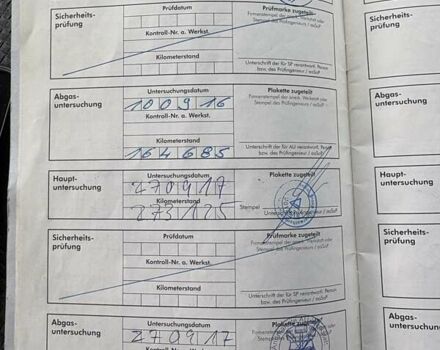 Sicherheits-
prüfung
Prüfdatum
Kontroll-Nr. a. Werkst.
Kilometerstand
Prüfmarke zugeteilt
Firmenstempel der anerk. Werkstatt oder
Stempel des Prüfingenieurs / aaSoP
Unterschrift der für SP verantwort. Person
bzw. des Prüfingenieurs / aaSoP
Abgas-
untersuchung
Untersuchungsdatum
100916
Kontroll-Nr. a. Werkst.
Kilometerstand
164685
Plakette zugeteilt
Firmenstempel der anerk. Werkstatt oder
Stempel des Prüfingenieurs / aaSoP
Unterschrift der für AU verantwort. Person
bzw. des Prüfingenieurs / aaSoP
Haupt-
untersuchung
Untersuchungsdatum
270917
Kilometerstand
273125
Plakette zugeteilt
Stempel
Sicherheits-
prüfung
Prüfdatum
Kontroll-Nr. a. Werkst.
Kilometerstand
Prüfmarke zugeteilt
Firmenstempel der anerk. Werkstatt oder
Stempel des Prüfingenieurs / aaSoP
Unterschrift der für SP verantwort. Person
bzw. des Prüfingenieurs / aaSoP
Abgas-
untersuchung
Untersuchungsdatum
270917
Kontroll-Nr. a. Werkst.
Plakette
Sicherheits-
prüfung
Abgas-
untersuchung
Haupt-
untersuchung
Sicherheits-
prüfung
Abgas-
untersuchung